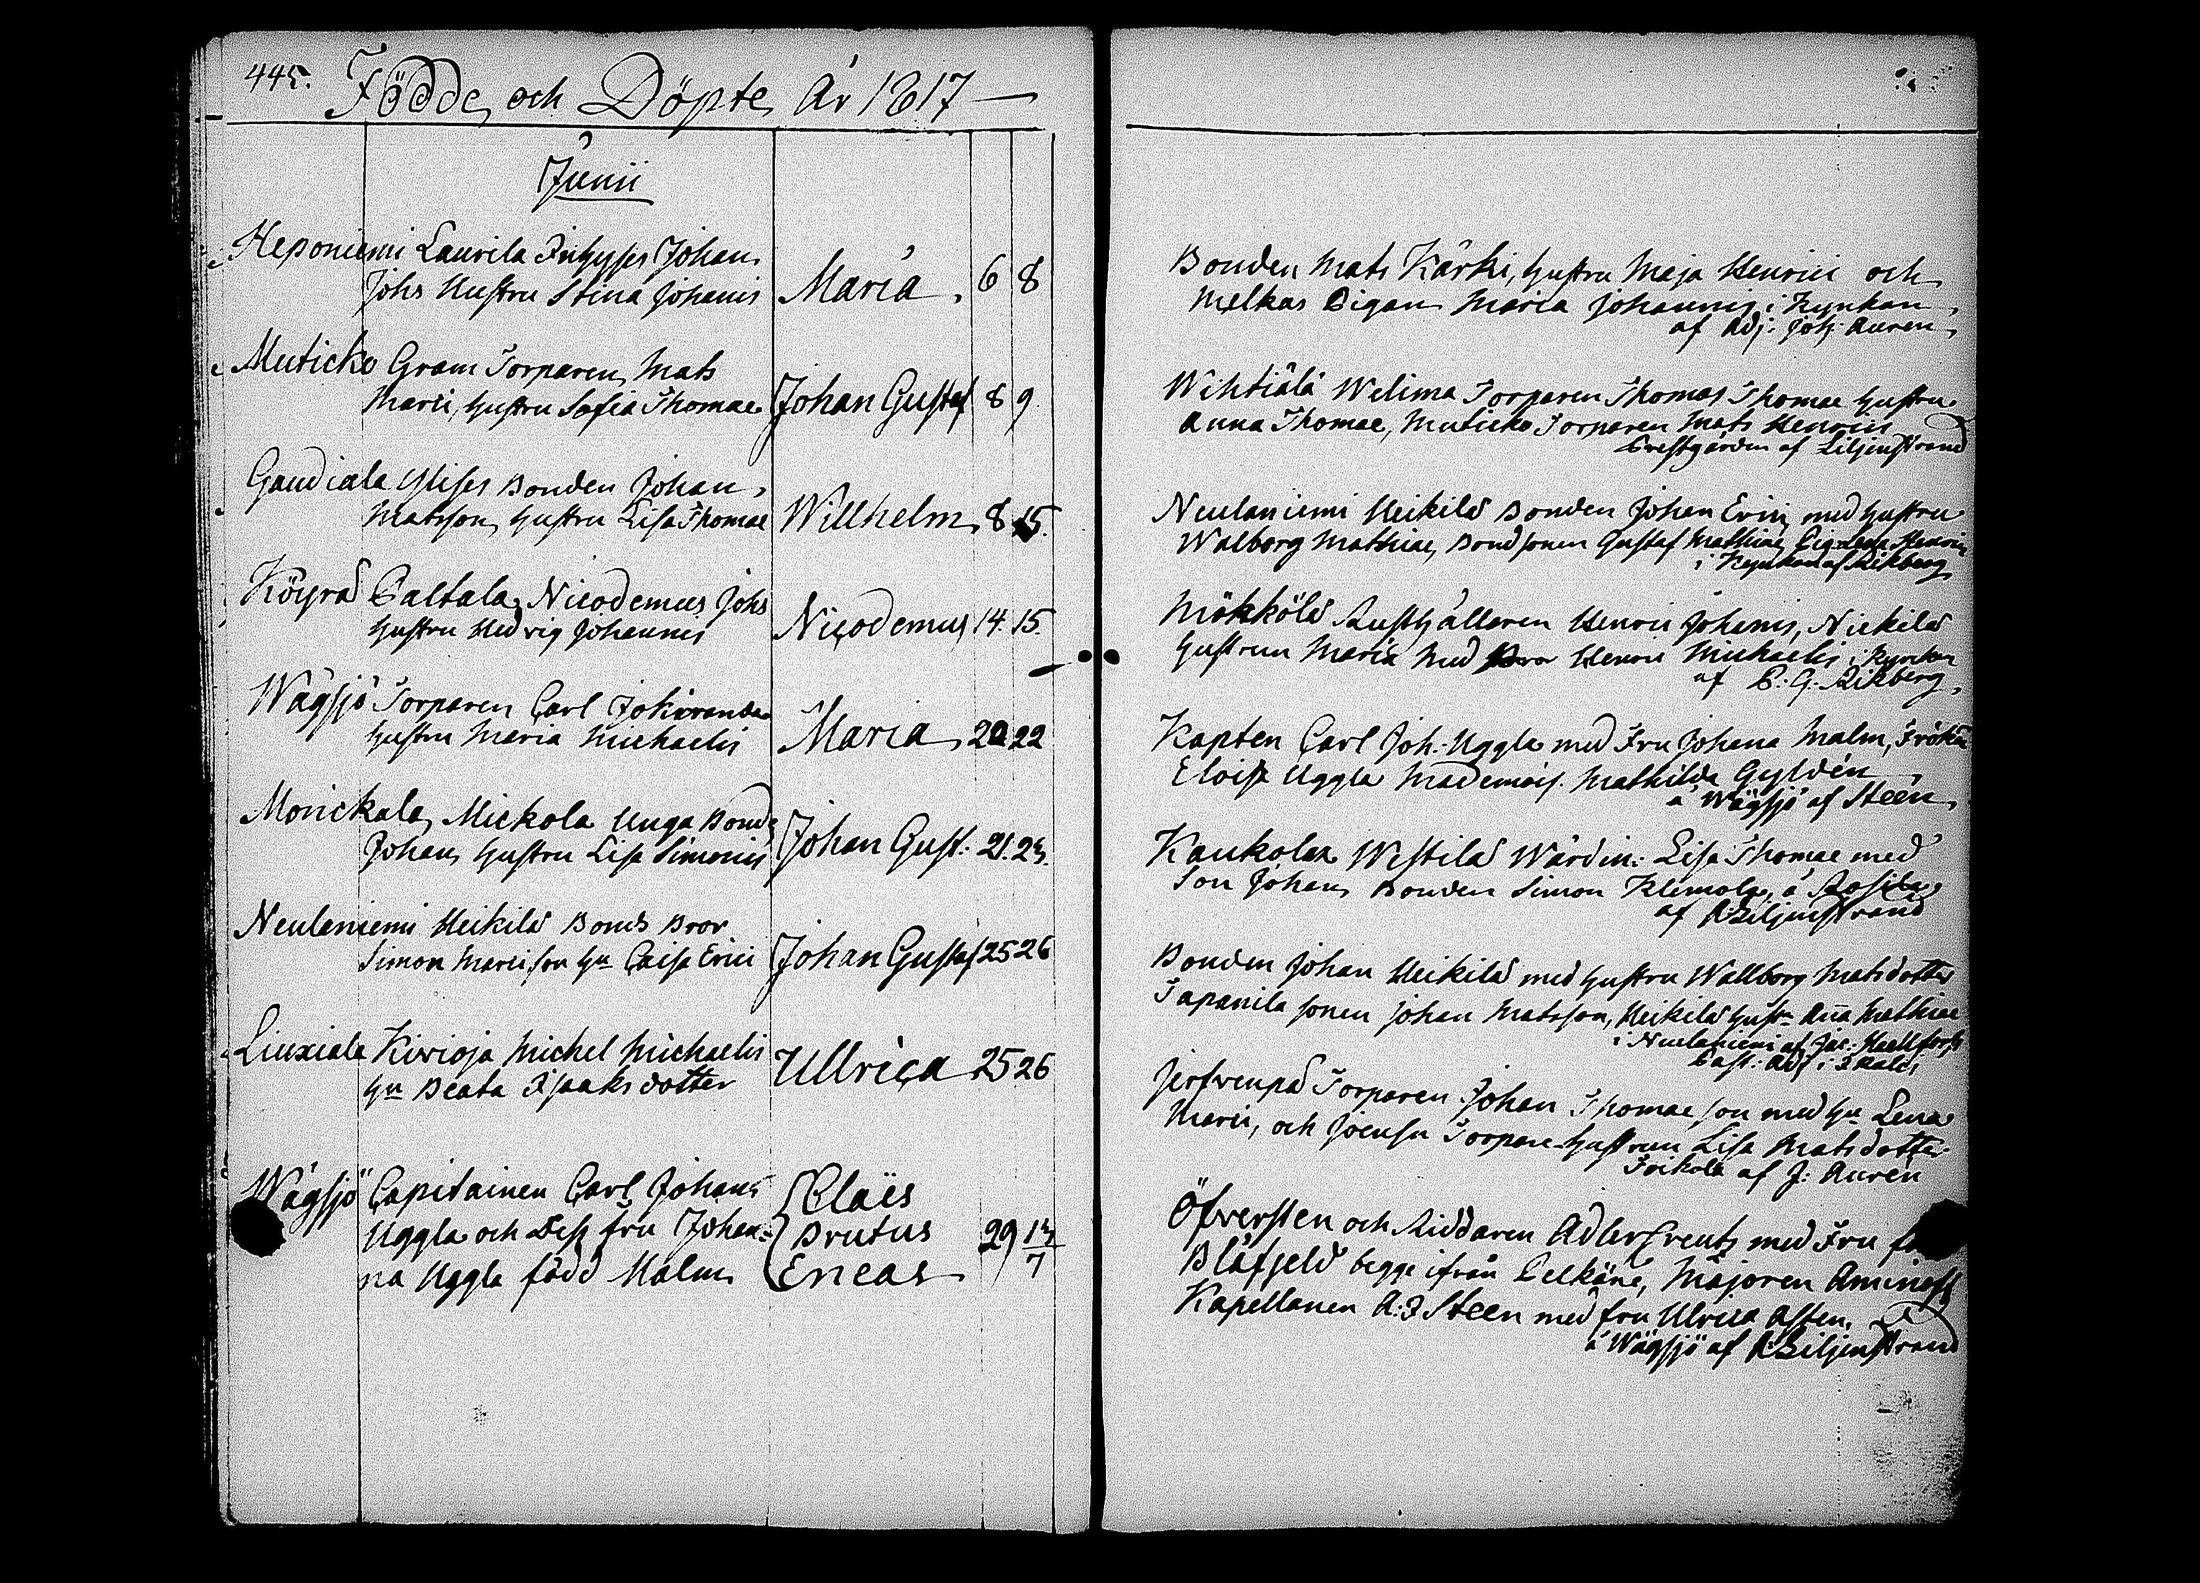 445.
Födde och Döpte År 1817
Junii
Heponiemi Laurila Inhyses Johan
Johs Hustru Stina Johanis Maria 6 8
Muticko Gram Torparen Mats
Marci, hustru Sofia Thomae Johan Gustaf 8 9
Gaudiala Bonden Johan
Matsson, hustru Lisa Thomae Willhelm 8 15.
Köyrä Paltala Nicodemus Johs
hustru Hedvig Johannis Nicodemus 14. 15.
Wågsjö Torparen Carl
hustru Maria Michaelis Maria 20 22
Monickala Mickola Unga Bond
Johan, hustru Lisa Simonis Johan Gust: 21. 23.
Neulaniemi Heikilä Bonds Bror
Simon Marci son hu Caisa Erici Johan Gustaf 25 26
Liuxiala Kivioja Michel Michaelis
hu Beata Isaaks dotter Ullrica 25 26
Wågsjö Capitainen Carl Johan Claës
Uggla och Dess fru Johan= Brutus 29 13/7
na Uggla född Malm Eneas
Bonden Mats Kärki, hustru Maja Henrici och
Melkas Pigan Maria Johannis i Kyrkan
af Adj: Joh: Auren
Wihtiälä Welima Torparen Thomas Thomae hustru
Anna Thomae, Muticko Torparen Mats Henrici
Prestgården af Liljenstrand
Neulaniemi Heikilä Bonden Johan Erici med hustru
Walborg Mathiae, Bondsonen Gustaf Mathiae
i Kyrkan af Rikberg
Mökkölä Rusthållaren Henric Johanis, Nickilä
hustrun Maria med Henric Michaelis i Kyrckan
af P. G. Rikberg
Kapten Carl Joh: Uggla med Fru Johana Malm, Fröken
Eloisa Uggla Mademois. Mathilda Gyldén
å Wågsjö af Steen
Kaukola Westilä Wärdin: Lisa Thomae med
Son Johan, Bonden Simon Klemola, å
af A: Liljenstrand
Bonden Johan Heikilä med hustru Wallborg Matsdotter
Tapanila sonen Johan Matsson, Heikilä hustr Aña Mathiae
i Neulaniemi af Jac: Hællfors
Past: Adj i
Torparen Johan Thomae son med hu Lena
Marci, och Joensu Torpare-hustrun Lisa Matsdotter
af J: Auren
Öfversten och Riddaren Adlercreutz med Fru
Blåfjeld begge ifrån Pelkäne, Majoren Aminoff
Kapellanen A: J Steen med fru Ulrica Asten,
å Wågsjö af A Liljenstrand